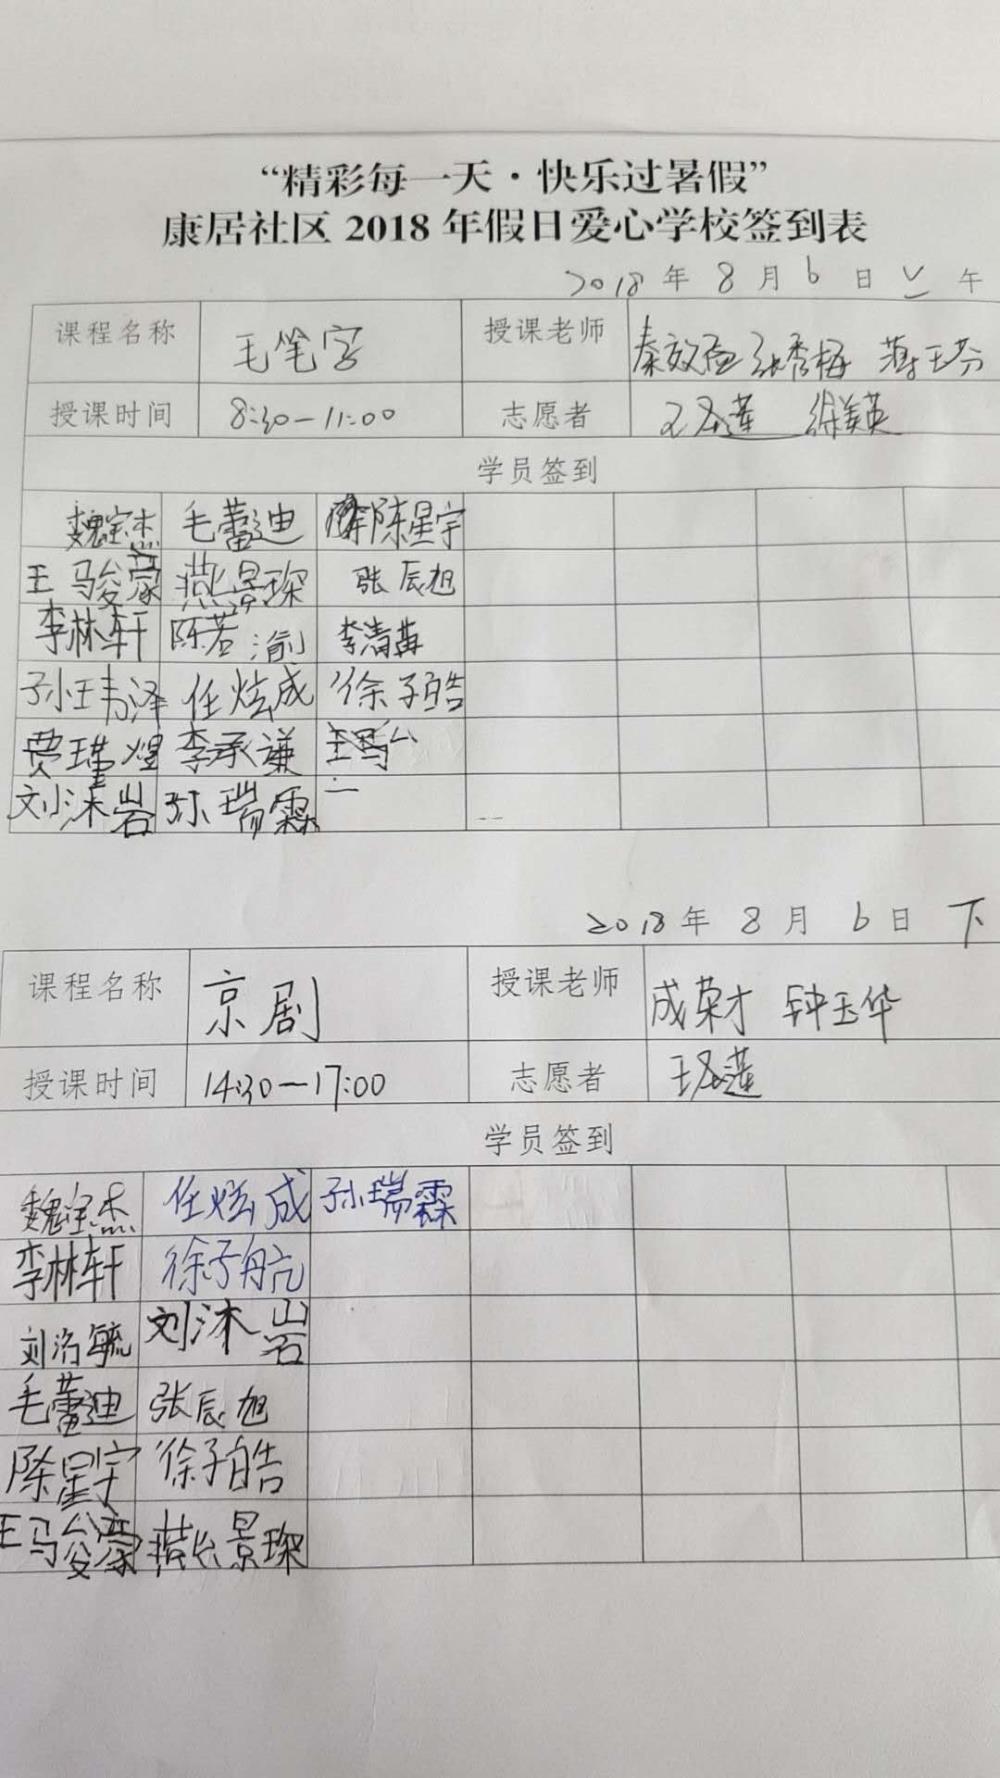 “精彩每一天·快乐过暑假”
康居社区 2018 年假日爱心学校签到表
2018 年 8 月 6 日 上 午
课程名称 毛笔字 授课老师 秦效 张秀梅 薛玉芬
授课时间 8:30—11:00 志愿者 王圣莲 徐美英
学员签到
魏宝杰 毛蕾迪 陈星宇
王马俊豪 燕景琛 张辰旭
李林轩 陈若渝 李清苒
孙玉韦泽 任炫成 徐子皓
贾瑾煜 李承谦
刘沐岩 孙瑞霖
2018 年 8 月 6 日 下
课程名称 京剧 授课老师 成荣才 钟玉华
授课时间 14:30—17:00 志愿者 王圣莲
学员签到
魏宝杰 任炫成 孙瑞霖
李林轩 徐子航
刘洛毓 刘沐岩
毛蕾迪 张辰旭
陈星宇 徐子皓
王马俊豪 燕景琛